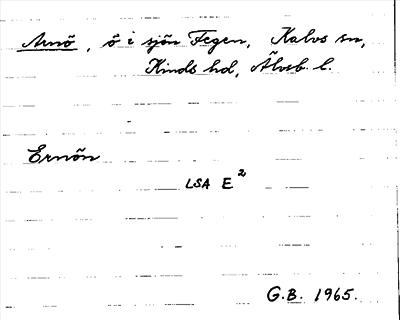 Arnö, ö i sjön Fegen, Kalvs sn,
Kinds hd, Älvsb. l.
Ernön
LSA E²
G.B. 1965.